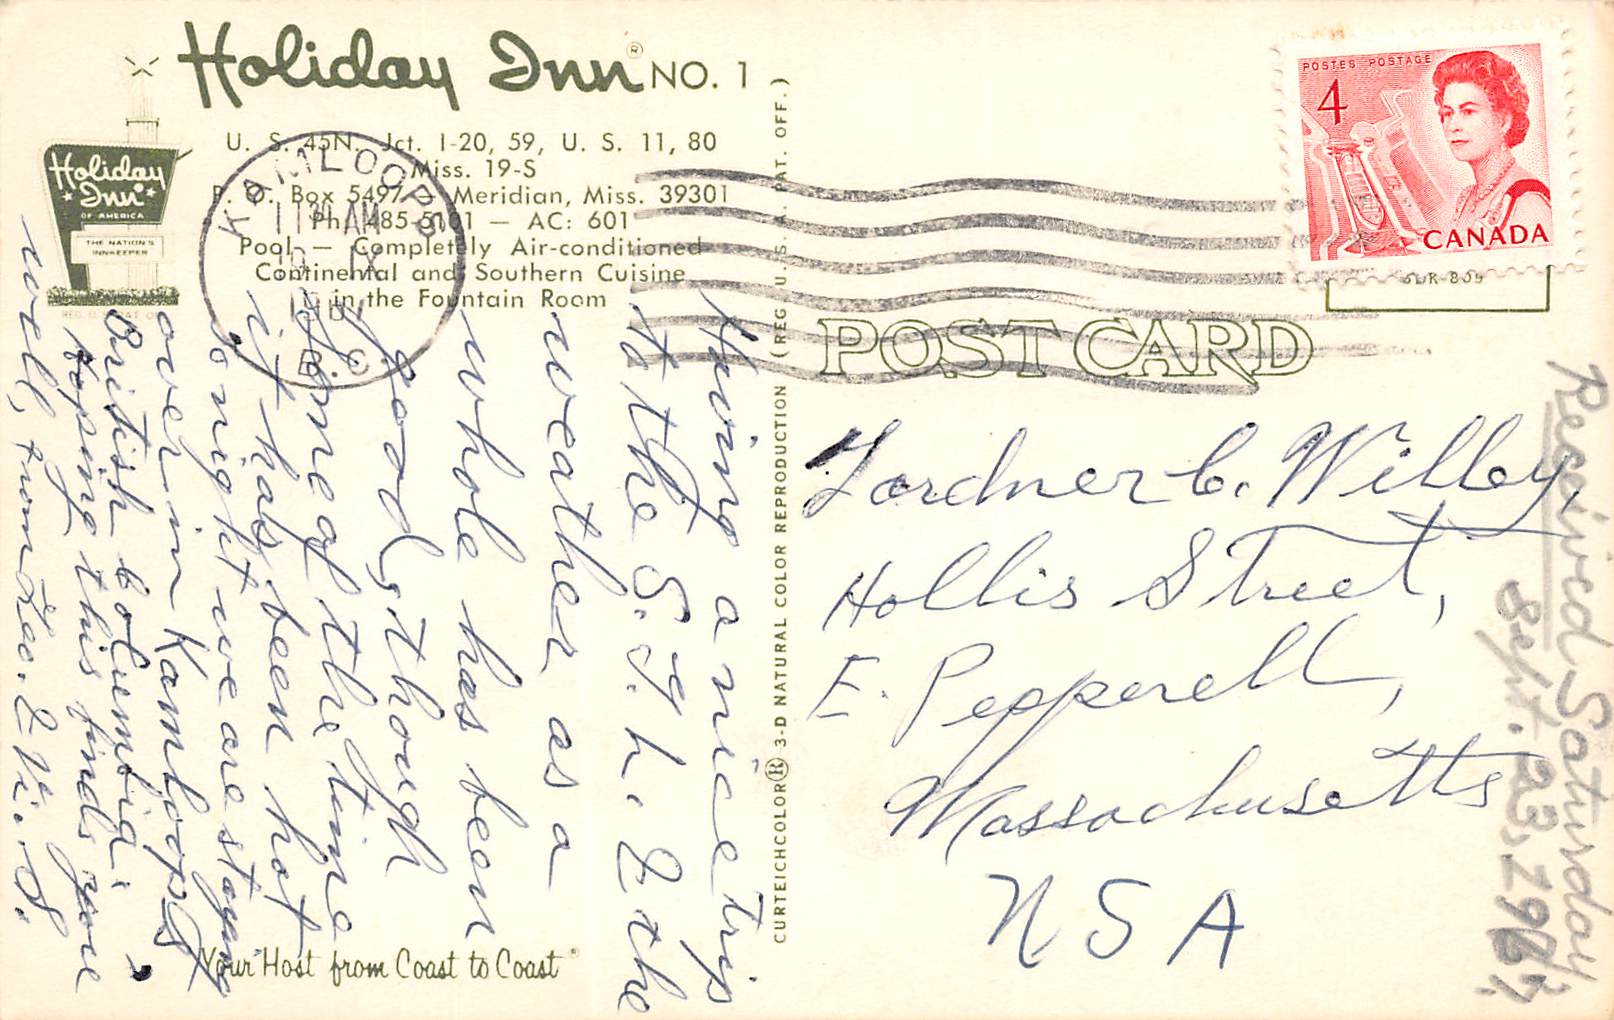 Holiday Inn® NO. 1
U. S. 45N. Jct. I-20, 59, U. S. 11, 80
Miss. 19-S
P. O. Box 5497 Meridian, Miss. 39301
Ph 485-5101 — AC: 601
Pool — Completely Air-conditioned
Continental and Southern Cuisine
in the Fountain Room
Holiday
Inn
OF AMERICA
THE NATION'S
INNKEEPER
KAMLOOPS
11 AM
B.C
Having a nice trip
to the S.
& the
weather as a
whole has been
good, though
some of the time
it has been hot
tonight we are staying
over in Kamloops
British Columbia.
Hoping this finds you
well, from Leo. & Vi. S.
Your Host from Coast to Coast
CURTEICHCOLOR® 3-D NATURAL COLOR REPRODUCTION (REG. U.S.A. PAT. OFF.)
POSTES POSTAGE
4
CANADA
POST CARD
Gardner C. Willey,
Hollis Street,
E. Pepperell,
Massachusetts
USA
Received Saturday
Sept. 23, 1967.